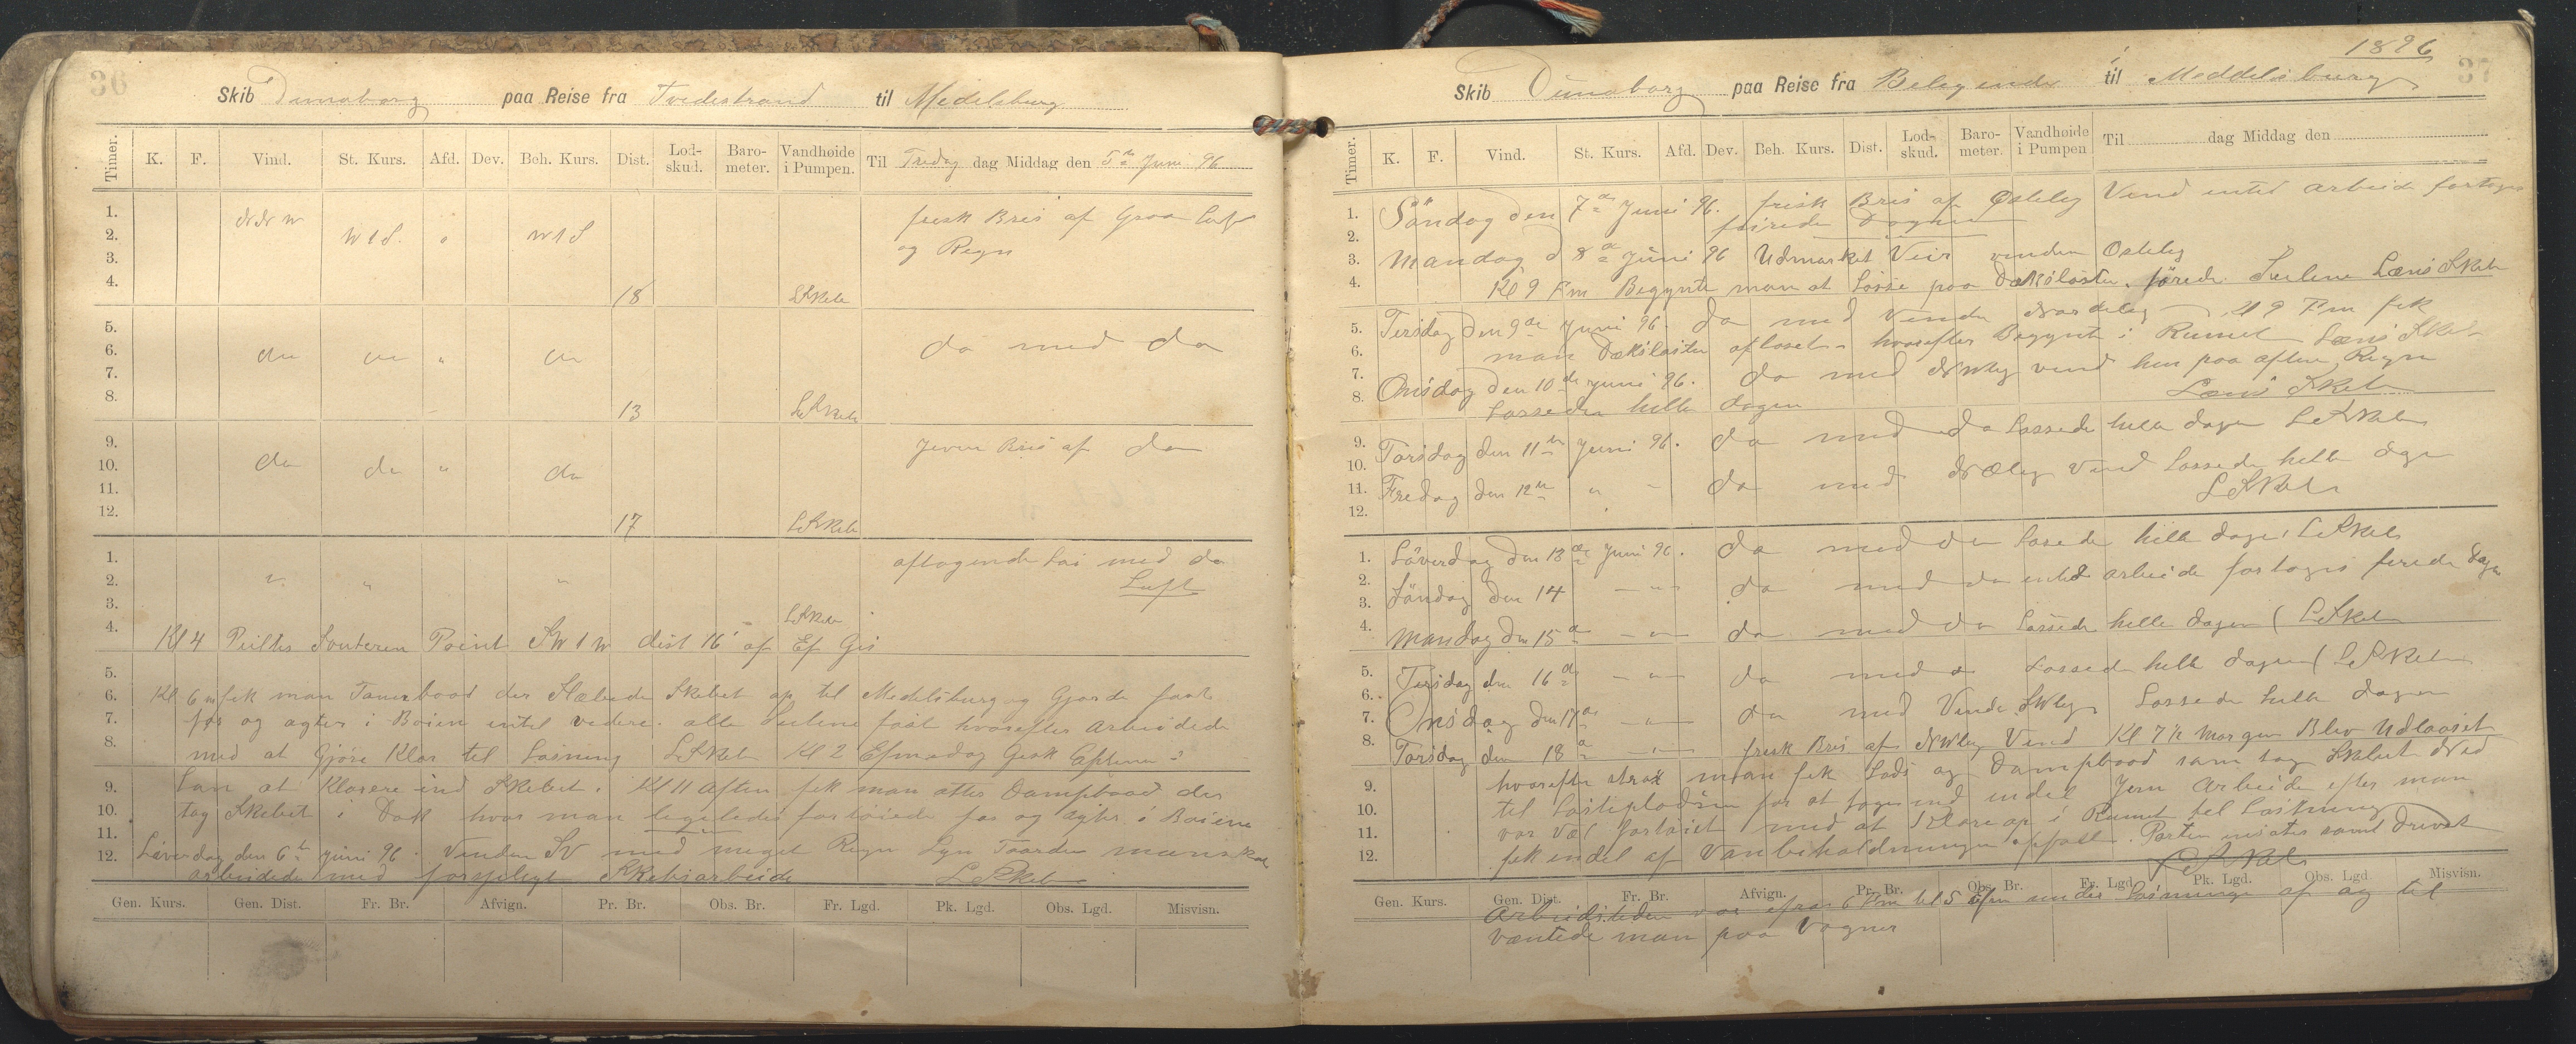 36
Skib Dunaborg paa Reise fra Tvedestrand til Medelsburg
Timer. K. F. Vind. St. Kurs. Afd. Dev. Beh. Kurs. Dist. Lod-skud. Baro-meter. Vandhøide i Pumpen. Til Fredag dag Middag den 5te Juni 96
1. NNW frisk Bris af Graa Luft
2. W1S. " W1S og Regn
3.
4. 18 LSkib
5.
6. da da " da da med da
7.
8. 13 LSkib
9. Jevn Bris af da
10. da da " da
11.
12. 17 LSkib
1. aftagende Lai med da
2. " " " Luft
3. LSkib
4. Kl 4 Peiltes Souteren Point SW1W dist 16' af Ef Gis
5.
6. Kl 6 fik man Tauerbaad der Slæbede Skibet op til Medelsburg og Gjorde fast
7. for og agter i Boien intil videre. alle Seilene fast hvorefter arbeidede
8. med at Gjøre Klar til Losning LSkib Kl 2 Efmadag Gik Capten i
9. Lan at Klarere ind Skibet. Kl 11 Aften fik man atter Dampbaad der
10. tog Skibet i Dok hvor man legeledes fortøiede for og agter i Boiene
11.
12. Løverdag den 6te Juni 96. Vinden SV med meget Regn Lyn Taarden manskab
arbeidede med forskjeligt Skibsarbeide LSkib
Gen. Kurs. Gen. Dist. Fr. Br. Afvign. Pr. Br. Obs. Br. Fr. Lgd. Pk. Lgd. Obs. Lgd. Misvisn.
1896
37
Skib Dunaborg paa Reise fra Beleggende til Meddelsburg
Timer. K. F. Vind. St. Kurs. Afd. Dev. Beh. Kurs. Dist. Lod-skud. Baro-meter. Vandhøide i Pumpen Til dag Middag den
1. Söndag den 7de Juni 96. frisk Bris af Osteleg Vind intet arbeide fortoges
2. feirede Dagen
3. Mandag d 8de Juni 96 Udmærket Veir vinden Osteleg
4. Kl 9 Fm Begynte man at Losse paa Dækslasten. törede Seilene Læns Skib
5. Tirsdag den 9de Juni 96. da med Vinden Nordeleg Kl 9 Fm fik
6. man Dækslasten aflaset hvorefter Begynte i Rumet Læns Skib
7. Onsdag den 10de Juni 96. da med NWleg vind hen paa aften Regn
8. Lossede helle dagen Læns Skib
9. Torsdag den 11te Juni 96. da med da Lossede helle dagen LSkib
10.
11. Fredag den 12te " " da med NØleg Vind Lossede helle dagen
12. LSkib
1. Löverdag den 13de Juni 96. da med da Lossede helle dagen LSkib
2. Söndag den 14 - " - da med da intet arbeide fortoges feirede Dagen
3.
4. Mandag den 15de - " - da med da Lossede helle dagen LSkib
5. Tirsdag den 16de - " - da med da Lossede helle dagen LSkib
6.
7. Onsdag den 17de - " - da med Vinden SWleg Lossede helle dagen
8. Torsdag den 18de - " - frisk Bris af NWleg Vind Kl 7½ Morgen Blev Udlosset
9. hvorefter strax man fik Lods og Dampbaad som tog Skibet Ned
10. til Lastepladsen for at tage ind endel Jern Arbeide efter man
11. var vel fortøiet med at Klare op i Rumet til Lastning
12. fik endel af Vanbeholdningen opfylt. Parten misten samt Drivet
LSkib
Gen. Kurs. Gen. Dist. Fr. Br. Afvign. Pr. Br. Obs. Br. Fr. Lgd. Pk. Lgd. Obs. Lgd. Misvisn.
Arbeidstiden var ifra 6 Fm til 5 Efm under Losningen af og til
ventede man paa Vogner